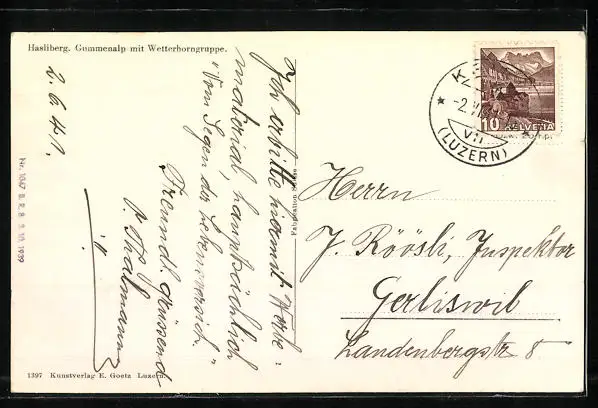 Hasliberg. Gummenalp mit Wetterhorngruppe.
2. 6. 41.
Ich erbitte hiermit Werbe-
material, hauptsächlich
"Vom Segen der Lebensversich."
Freundl. grüssend
Thalmann
HELVETIA
10
-2. VI
VII
(LUZERN)
Herrn
J. Röösli, Inspektor
Gerliswil
Landenbergstr 8
Nr. 1047 B. R. B. 3. 10. 1939
1397 Kunstverlag E. Goetz Luzern.